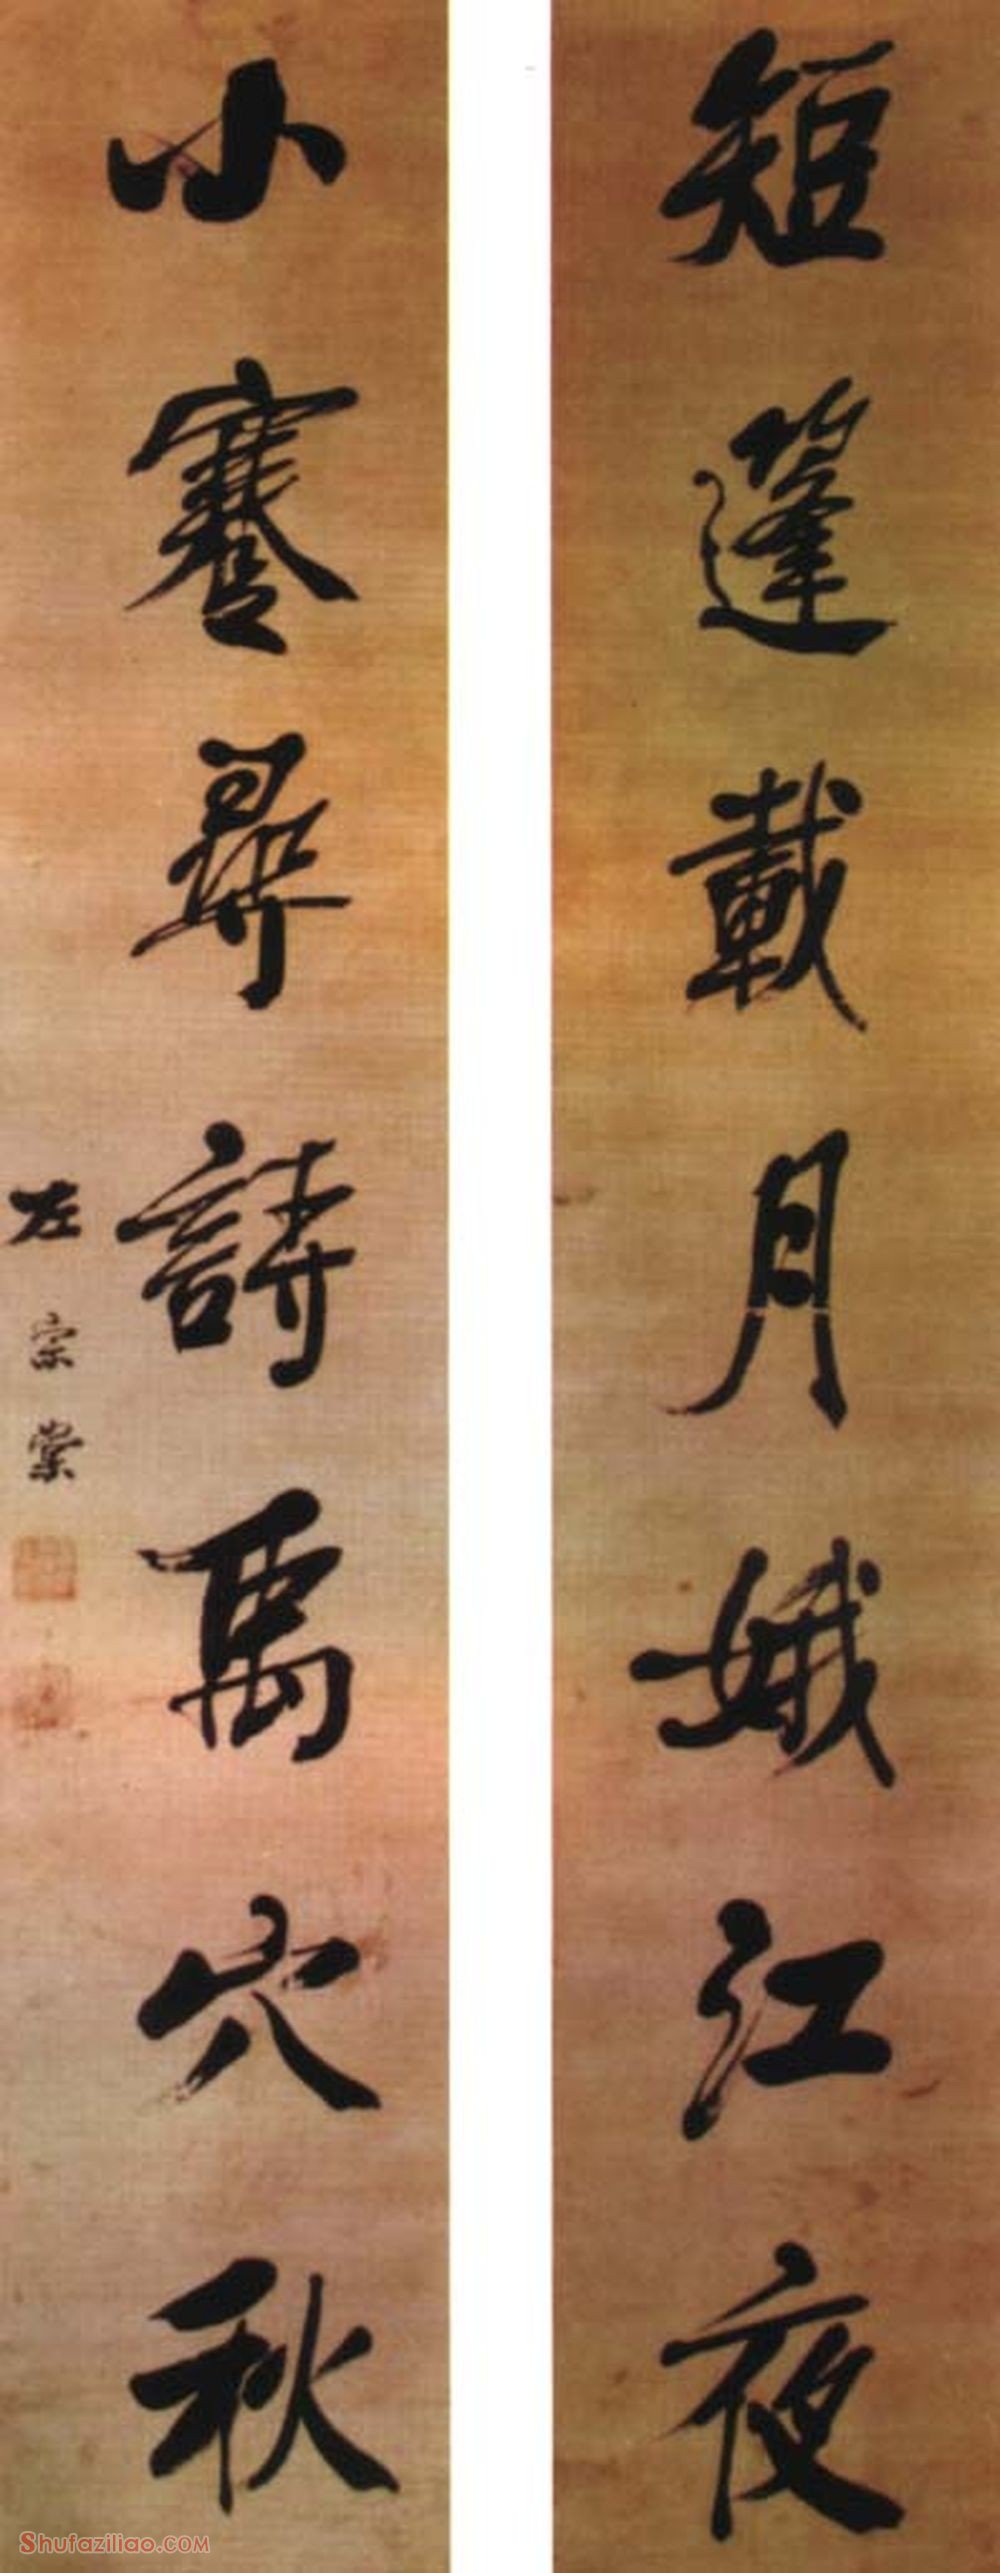 短篷載月娥江夜
小蹇尋詩禹穴秋
左宗棠
Shufaziliao.com